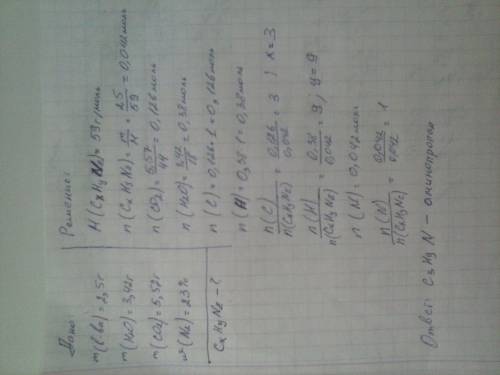 Дано:
m(в-ва) = 2,5г
m(H2O) = 3,42г
m(CO2) = 5,57г
w(N2) = 23%
CxHyNz - ?
Решение:
M(CxHyNz) = 59 г/моль
n(CxHyNz) = m/M = 2,5/59 = 0,042 моль
n(CO2) = 5,57/44 = 0,126 моль
n(H2O) = 3,42/18 = 0,38 моль
n(C) = 0,126 · 1 = 0,126 моль
n(H) = 0,38 · 1 = 0,38 моль
n(C)/n(CxHyNz) = 0,126/0,042 = 3 ; x = 3
n(H)/n(CxHyNz) = 0,38/0,042 = 9 ; y = 9
n(N) = 0,042 моль
n(N)/n(CxHyNz) = 0,042/0,042 = 1
Ответ: C3H9N - аминопропан